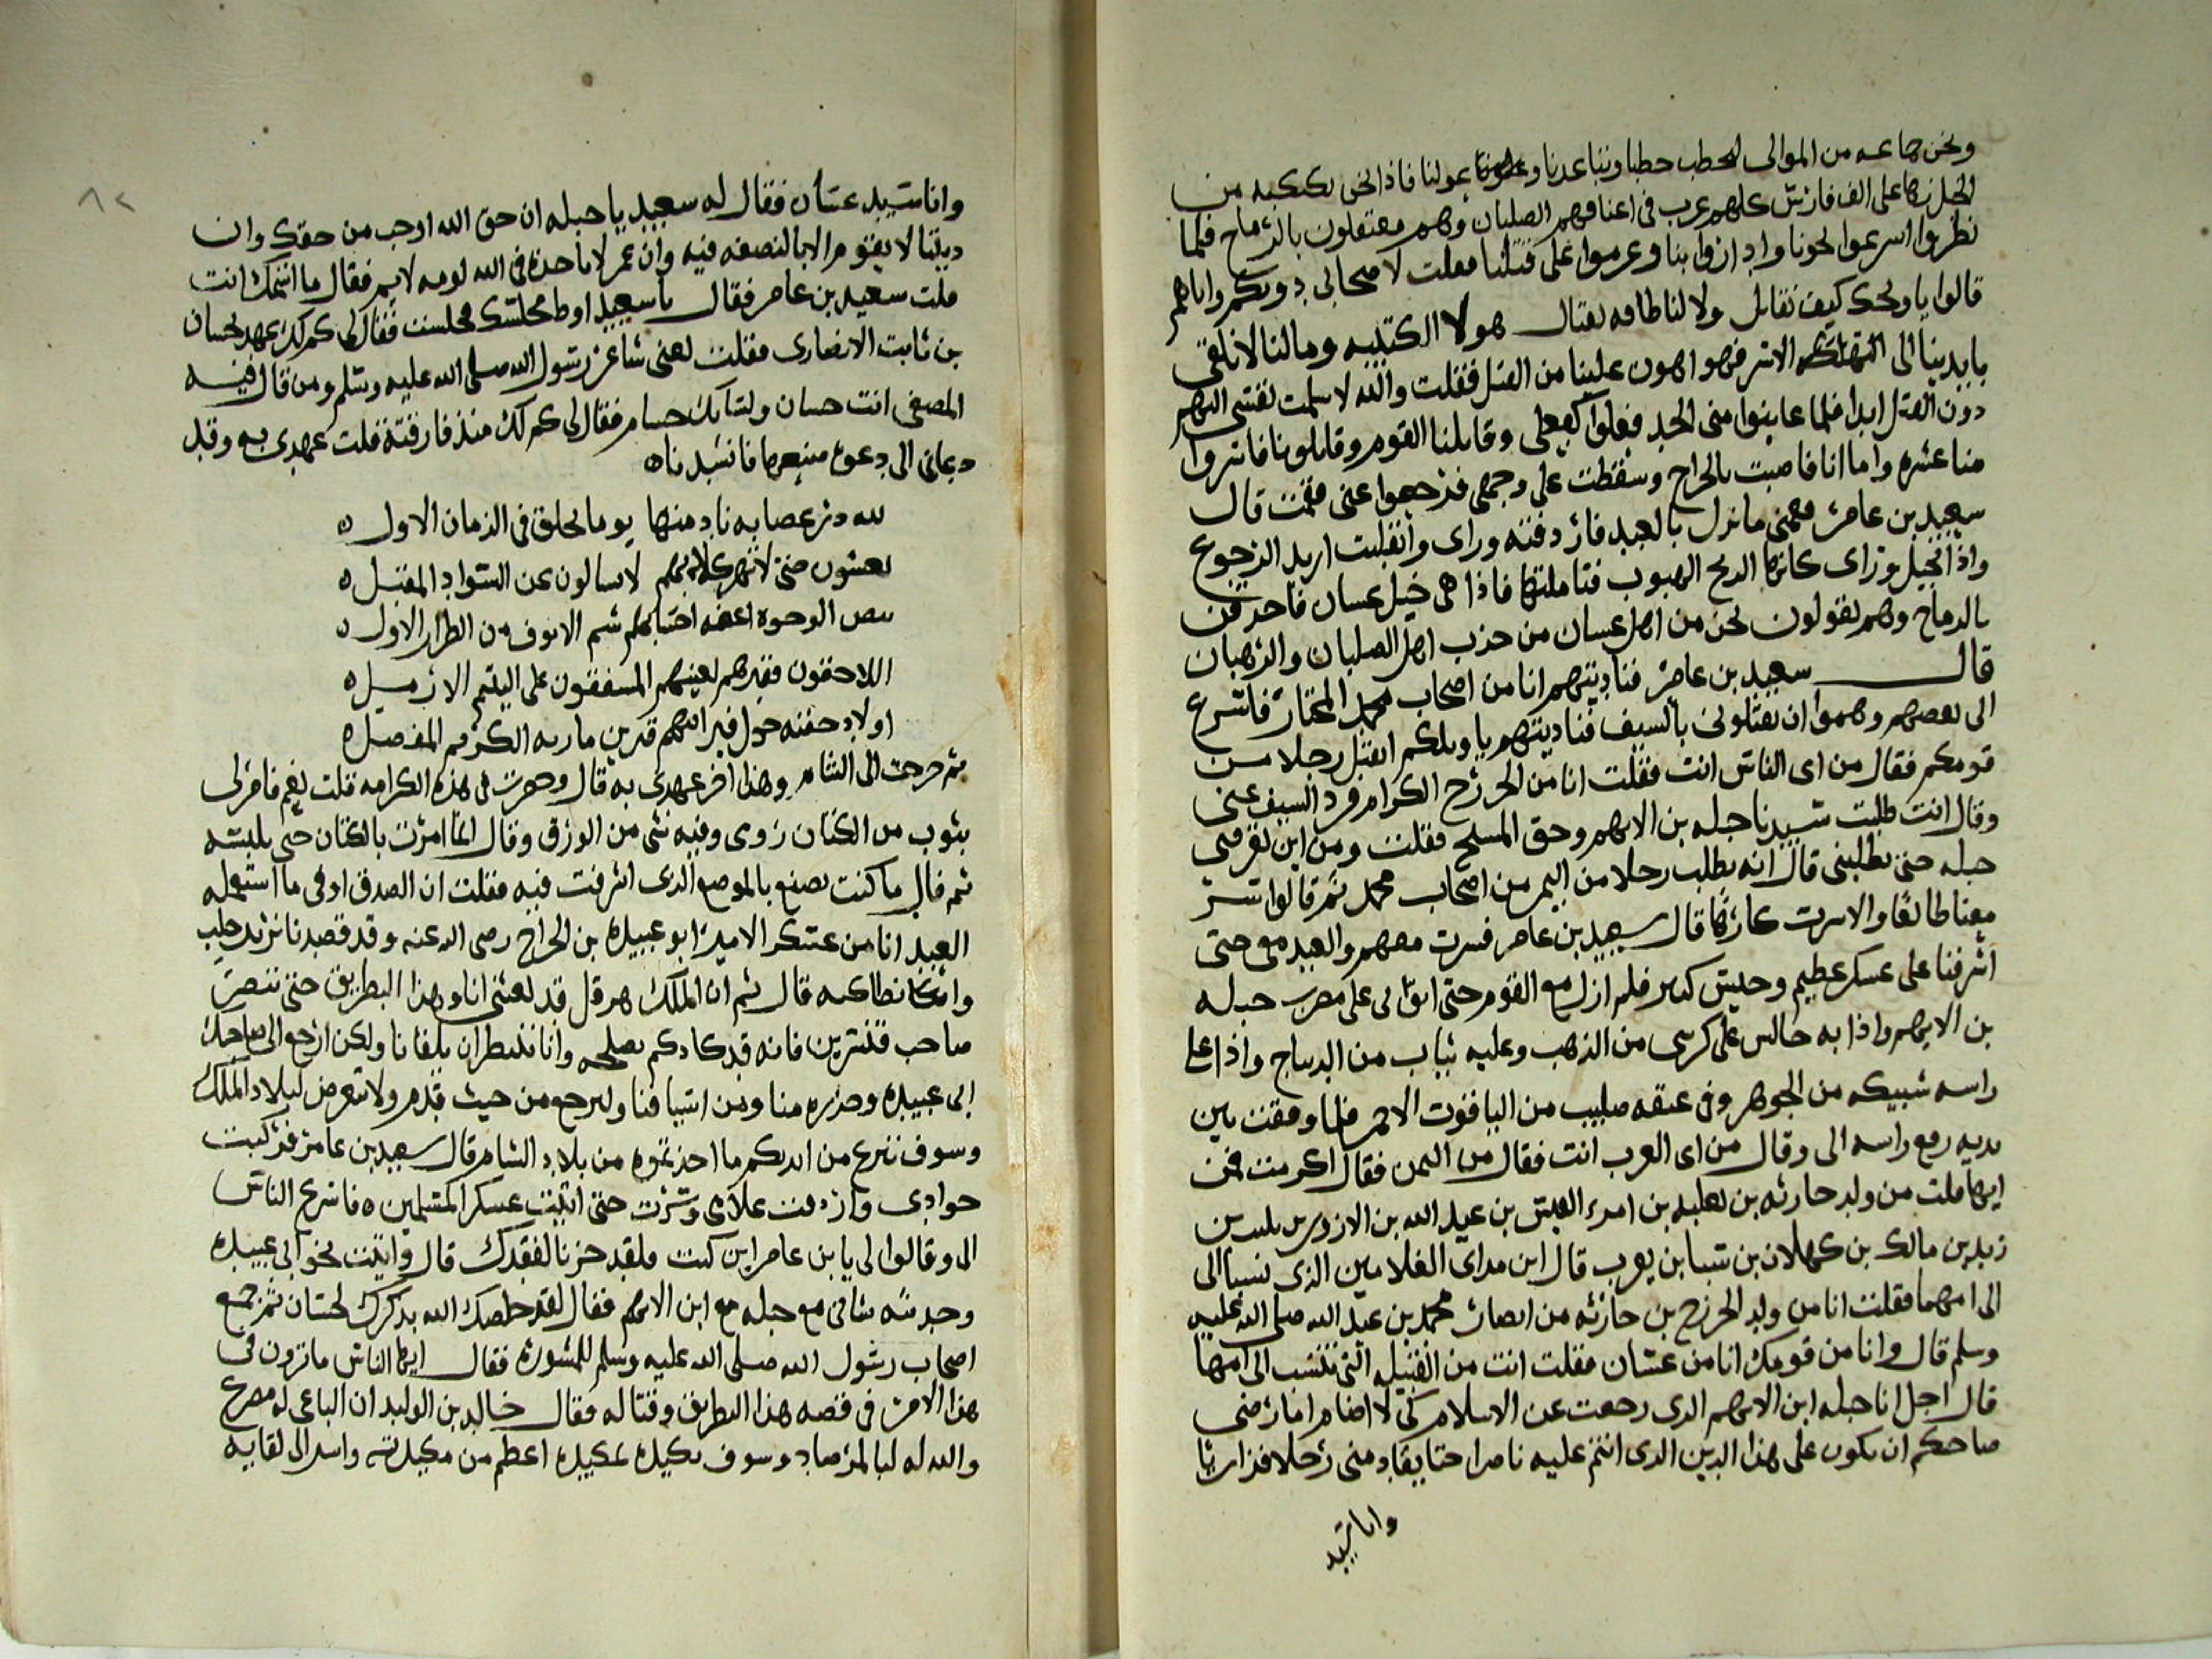 ونحن جماعه من الموالى لنحطب حطبا وتباعدنا وعلمونا عولنا فاذا نحن بكبكبه من
الخيل زكا على الف فارس كلهم عرب فى اعناقهم الصلبان وهم معتقلون بالرماح فلما
نظروا اسرعوا نحونا واداروا بنا وعزموا على قتلنا فقلت لاصحابى دونكم واياهم
قالوا يا ويحك كيف نقاتل ولا لنا طاقه بقتال هولا الكتيبه وما لنا الا نلقى
بايدينا الى الاسر فهو اهون علينا من القتل فقلت والله لا سلمت نفسى اليهم
دون القتل ابدا فلما عاينوا منى الجد فعلوا كفعلى وقاتلنا القوم وقاتلونا فاسروا
منا عشره واما انا فاصبت بالجراح وسقطت على وجهى فرجعوا عنى فقمت قال
سعيد بن عامر فهمنى ما نزل بالعبد فاردفته وراى وانقلبت اريد الرجوع
واذا بخيل وراى كانها الريح الهبوب فتاملتها فاذا هى خيل غسان فاحدقن
بالرماح وهم يقولون نحن من اهل غسان من حزب اهل الصلبان والرهبان
قال سعيد بن عامر فناديتهم انا من اصحاب محمد المختار فاسرع
الى بعضهم وهموا ان يقتلونى بالسيف فناديتهم يا ويلكم اتقتل رجلا من
قومكم فقال من اى الناس انت فقلت انا من الخزرج الكرام فرد السيف عنى
وقال انت طلبت سيدنا جبله بن الايهم وحق المسيح فقلت ومن اين يعرفنى
جبله حتى يطلبنى قال انه يطلب رجلا من اليمن من اصحاب محمد ثم قالوا سر
معنا طائعا والا سرت كارها قال سعيد بن عامر فسرت معهم والعبد معى حتى
اشرفنا على عسكر عظيم وجيش كبير فلم ازل مع القوم حتى اتوا بى على مضرب جبله
بن الايهم واذا به جالس على كرسى من الذهب وعليه ثياب من الديباج واذا على
راسه شبيكه من الجوهر وفى عنقه صليب من الياقوت الاحمر فلما وقفت بين
يديه رفع راسه الى وقال من اى العرب انت فقال من اليمن فقال اكرمت فمن
ايها قلت من ولد حارثه بن ثعلبه بن امرء القيس بن عبد الله بن الازد بن
زيد بن مالك بن كهلان بن سبا بن يعرب قال ابن من اى الغلامين الذى نسبا الى
الى امهما فقلت انا من ولد الخزرج بن حارثه من انصار محمد بن عبد الله صلى الله عليه
وسلم قال وانا من قومك انا من غسان فقلت انت من القبيله التى تنتسب الى امها
قال اجل انا جبله ابن الايهم الذى رجعت عن الاسلام كى لا اضام اما رضى
صاحبكم ان يكون على هذا الدين الذى انتم عليه ناصرا حتا يقاد منى رجلا فزاريا
وانا سيد
٨٢
وانا سيد غسان فقال له سعيد يا جبله ان حق الله اوجب من حقك وان
ديننا لا يقوم الا بالنصفه فيه وان عمر لا ياخذه فى الله لومه لايم فقال ما اسمك انت
قلت سعيد بن عامر فقال يا سعيد اوط مجلسك فجلست فقال لى كم لك عهد بحسان
بن ثابت الانصارى فقلت تعنى شاعر رسول الله صلى الله عليه وسلم ومن قال فيه
المصفى انت حسان ولسانك حسام فقال لى كم لك منذ فارقته قلت عهدى به وقد
دعانى الى دعوه فانشدناه
لله در عصابه نادمتها يوما بجلق فى الزمان الاول ه
يغشون حتى لا تهر كلابهم لا يسالون عن السواد المقبل ه
بيض الوجوه اعفه احسابهم شم الانوف من الطراز الاول ه
اللاحقون فقيرهم بغنيهم المشفقون على اليتيم الارمل ه
اولاد جفنه حول قبر ابيهم قبر بن ماريه الكريم المفضل ه
ثم خرجت الى الشام وهذا اخر عهدى به قال وحضرت فى هذه الكرامه قلت نعم فامر لى
بثوب من الكتان زوى وفيه شى من الورق وقال انما امرت بالكتان حتى يلبسه
ثم قال ما كنت تصنع بالموضع الذى اشرفت فيه فقلت ان الصدق اوفى ما استعمله
العبد انا من عسكر الامير ابو عبيده بن الجراح رضى الله عنه وقد قصدنا نريد حلب
وانطاكيه قال ثم ان الملك هرقل قد بعثنى انا وهذا البطريق حتى ننصر
صاحب قنسرين فانه قد كادكم بصلحه وانا ننتظر ان يلقانا ولكن ارجع الى صاحبك
ابى عبيده وحذره منا ومن اسيافنا وليرجع من حيث قدم ولا تعرض لبلاد الملك
وسوف ننزع من ايديكم ما اخذتموه من بلاد الشام قال سعيد بن عامر فركبت
جوادى واردفت غلامى وسرت حتى اتيت عسكر المسلمين ه فاسرع الناس
الى وقالوا لى يا بن عامر اين كنت فلقد حزنا لفقدك قال واتيت نحو ابى عبيده
وحدثته شانى مع جبله مع ابن الايهم فقال لقد خلصك الله بذكرك لحسان ثم جمع
اصحاب رسول الله صلى الله عليه وسلم للمشوره فقال ايها الناس ما ترون فى
هذا الامر فى قصه هذا البطريق وقتاله فقال خالد بن الوليد ان الباغى له مصرع
والله له لبالمرصاد وسوف نكيده بمكيده اعظم من مكيدته واسر الى لقايه